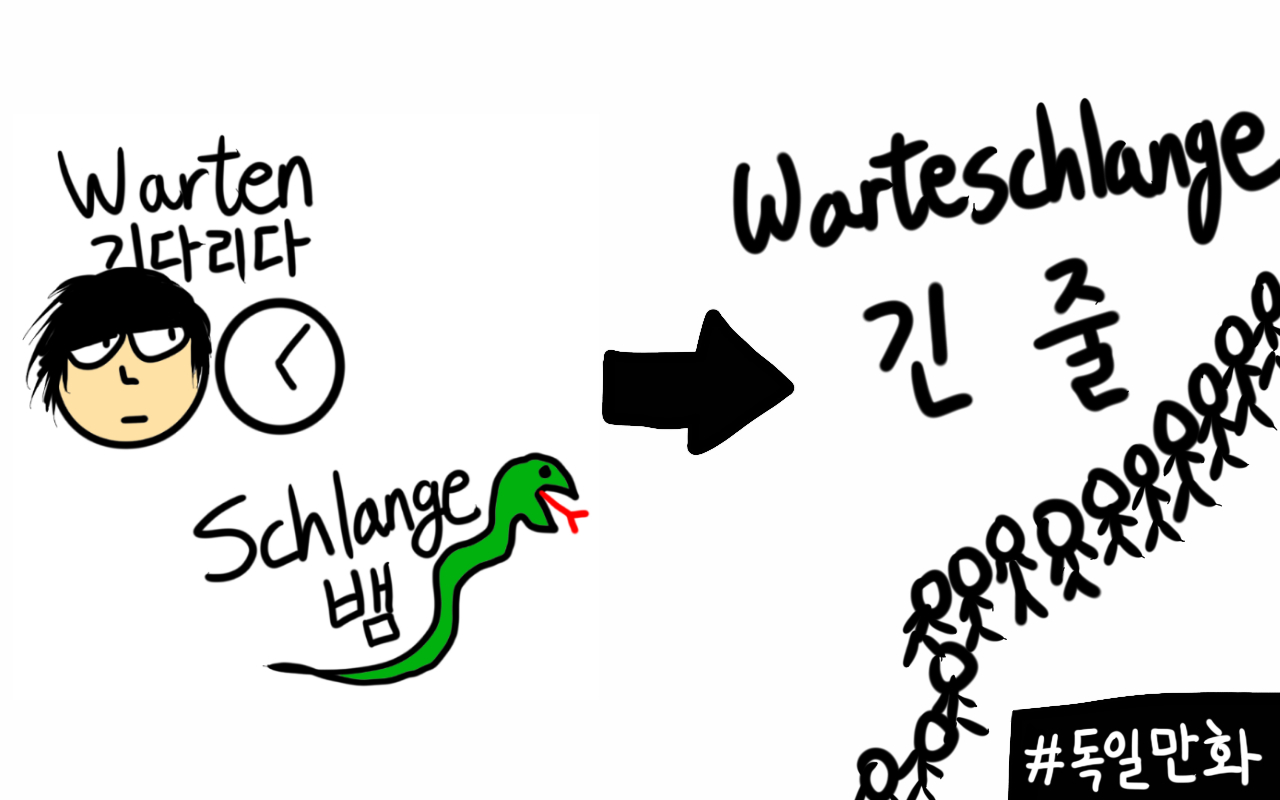 Warten
기다리다
Schlange
뱀
Warteschlange
긴 줄
#독일만화